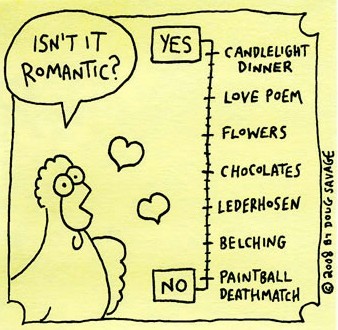 ISN'T IT
ROMANTIC?
YES
CANDLELIGHT
DINNER
LOVE POEM
FLOWERS
CHOCOLATES
LEDERHOSEN
BELCHING
NO
PAINTBALL
DEATHMATCH
© 2008 BY DOUG SAVAGE